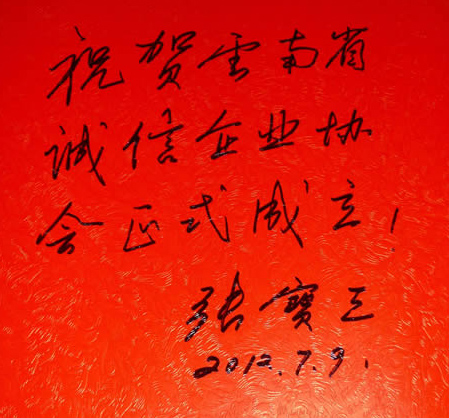 祝贺云南省
诚信企业协
会正式成立！
张寶三
2012.7.9.